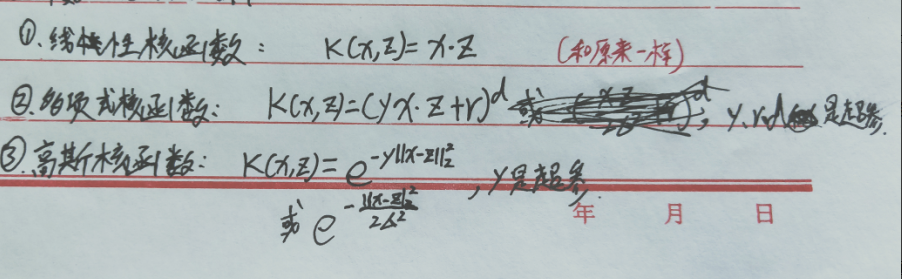 ①.线性核函数: K(x,z)=x·z (和原来一样)
②.多项式核函数: K(x,z)=(γx·z+r)^d, γ,r,d是超参.
③.高斯核函数: K(x,z)=e^{-γ||x-z||₂²}, γ是超参
或 e^{-||x-z||₂²/2σ²}
年 月 日